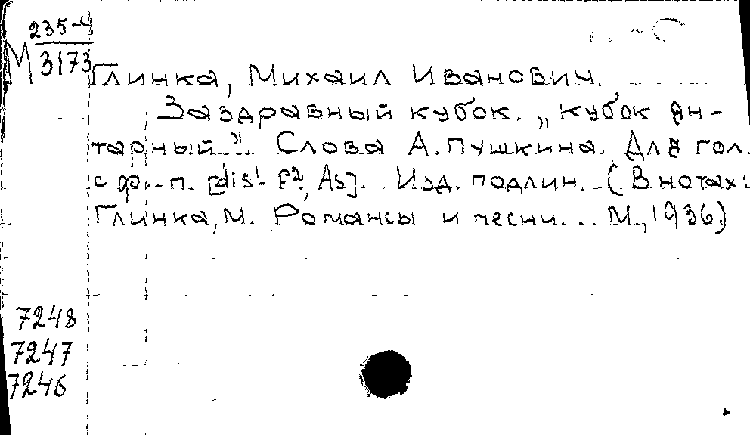 235-4
М 3173
Глинка, Михаил Иванович.
Заздравный кубок. „Кубок ян-
тарный". Слова А. Пушкина. Для гол.
с ф.-п. [dis¹-f², As]. Изд. подлин. (В нотах:
Глинка, М. Романсы и песни... М., 1936)
7248
7247
7246